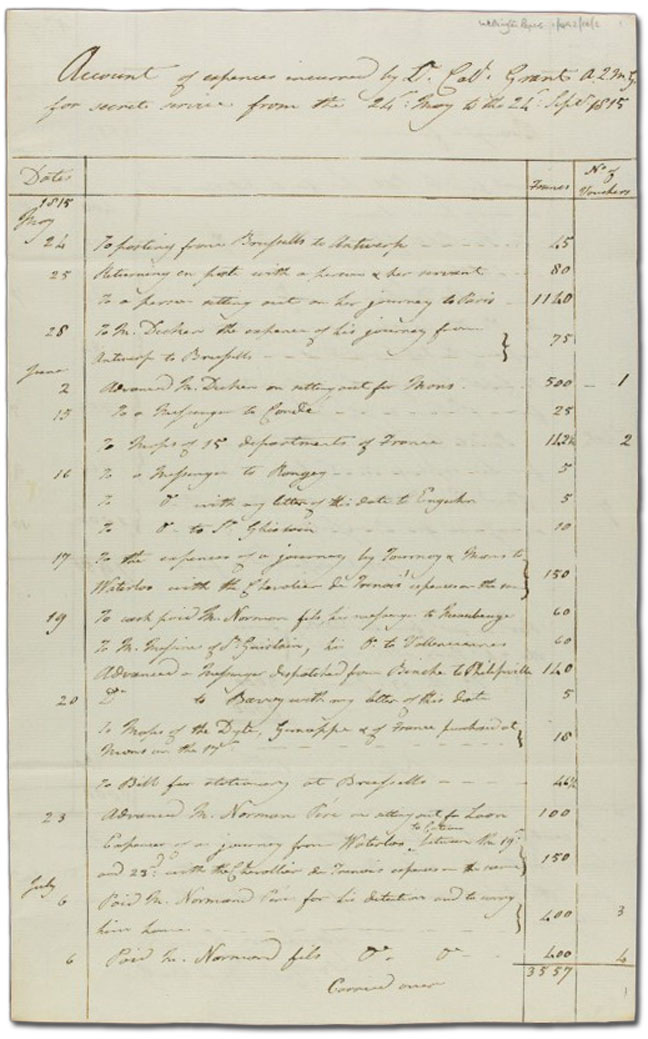 Wellington Papers
Account of expences incurred by Lt. Col. Grant A.Q.M.G.
for secret service from the 24th. May to the 24th. Sepr. 1815
Dates Francs No. of Vouchers
1815
May
24 To posting from Brussells to Antwerp 45
25 Returning en post with a person & her servant 80
To a person setting out on her journey to Paris 1140
28 To M. Decker the expence of his journey from
Antwerp to Brussells 75
June
2 Advanced M. Decker on setting out for Mons 500 1
15 To a Messenger to Condé 25
To Maps of 15 departments of France 2
16 To a Messenger to 5
To Do. with my letter of this date to Enguhn 5
To Do. to St. Ghislain 10
17 To the expences of a journey by Tournay & Mons to
Waterloo with the Chevalier de expences on the 150
19 To cash paid M. Norman fils, his messenger to Maubeuge 60
To M. of St. Guislain, his Do. to Valenciennes 60
Advanced a Messenger dispatched from Binche to Philipville 140
20 Do. to Bavay with my letter of this date 5
To Maps of the Dyle, Genappe & of France purchased at
Mons on the 19th 18
To Bill for stationery at Brussells 46½
23 Advanced M. Norman Père on setting out for Laon 100
Expences of a journey from Waterloo to Cateau between the 19th.
and 23d. with the Chevallier de expences on the same 150
July
6 Paid M. Normand Père for his detention and to carry
him home 400 3
6 Paid M. Normand fils Do. Do. 400 4
3557
Carried over